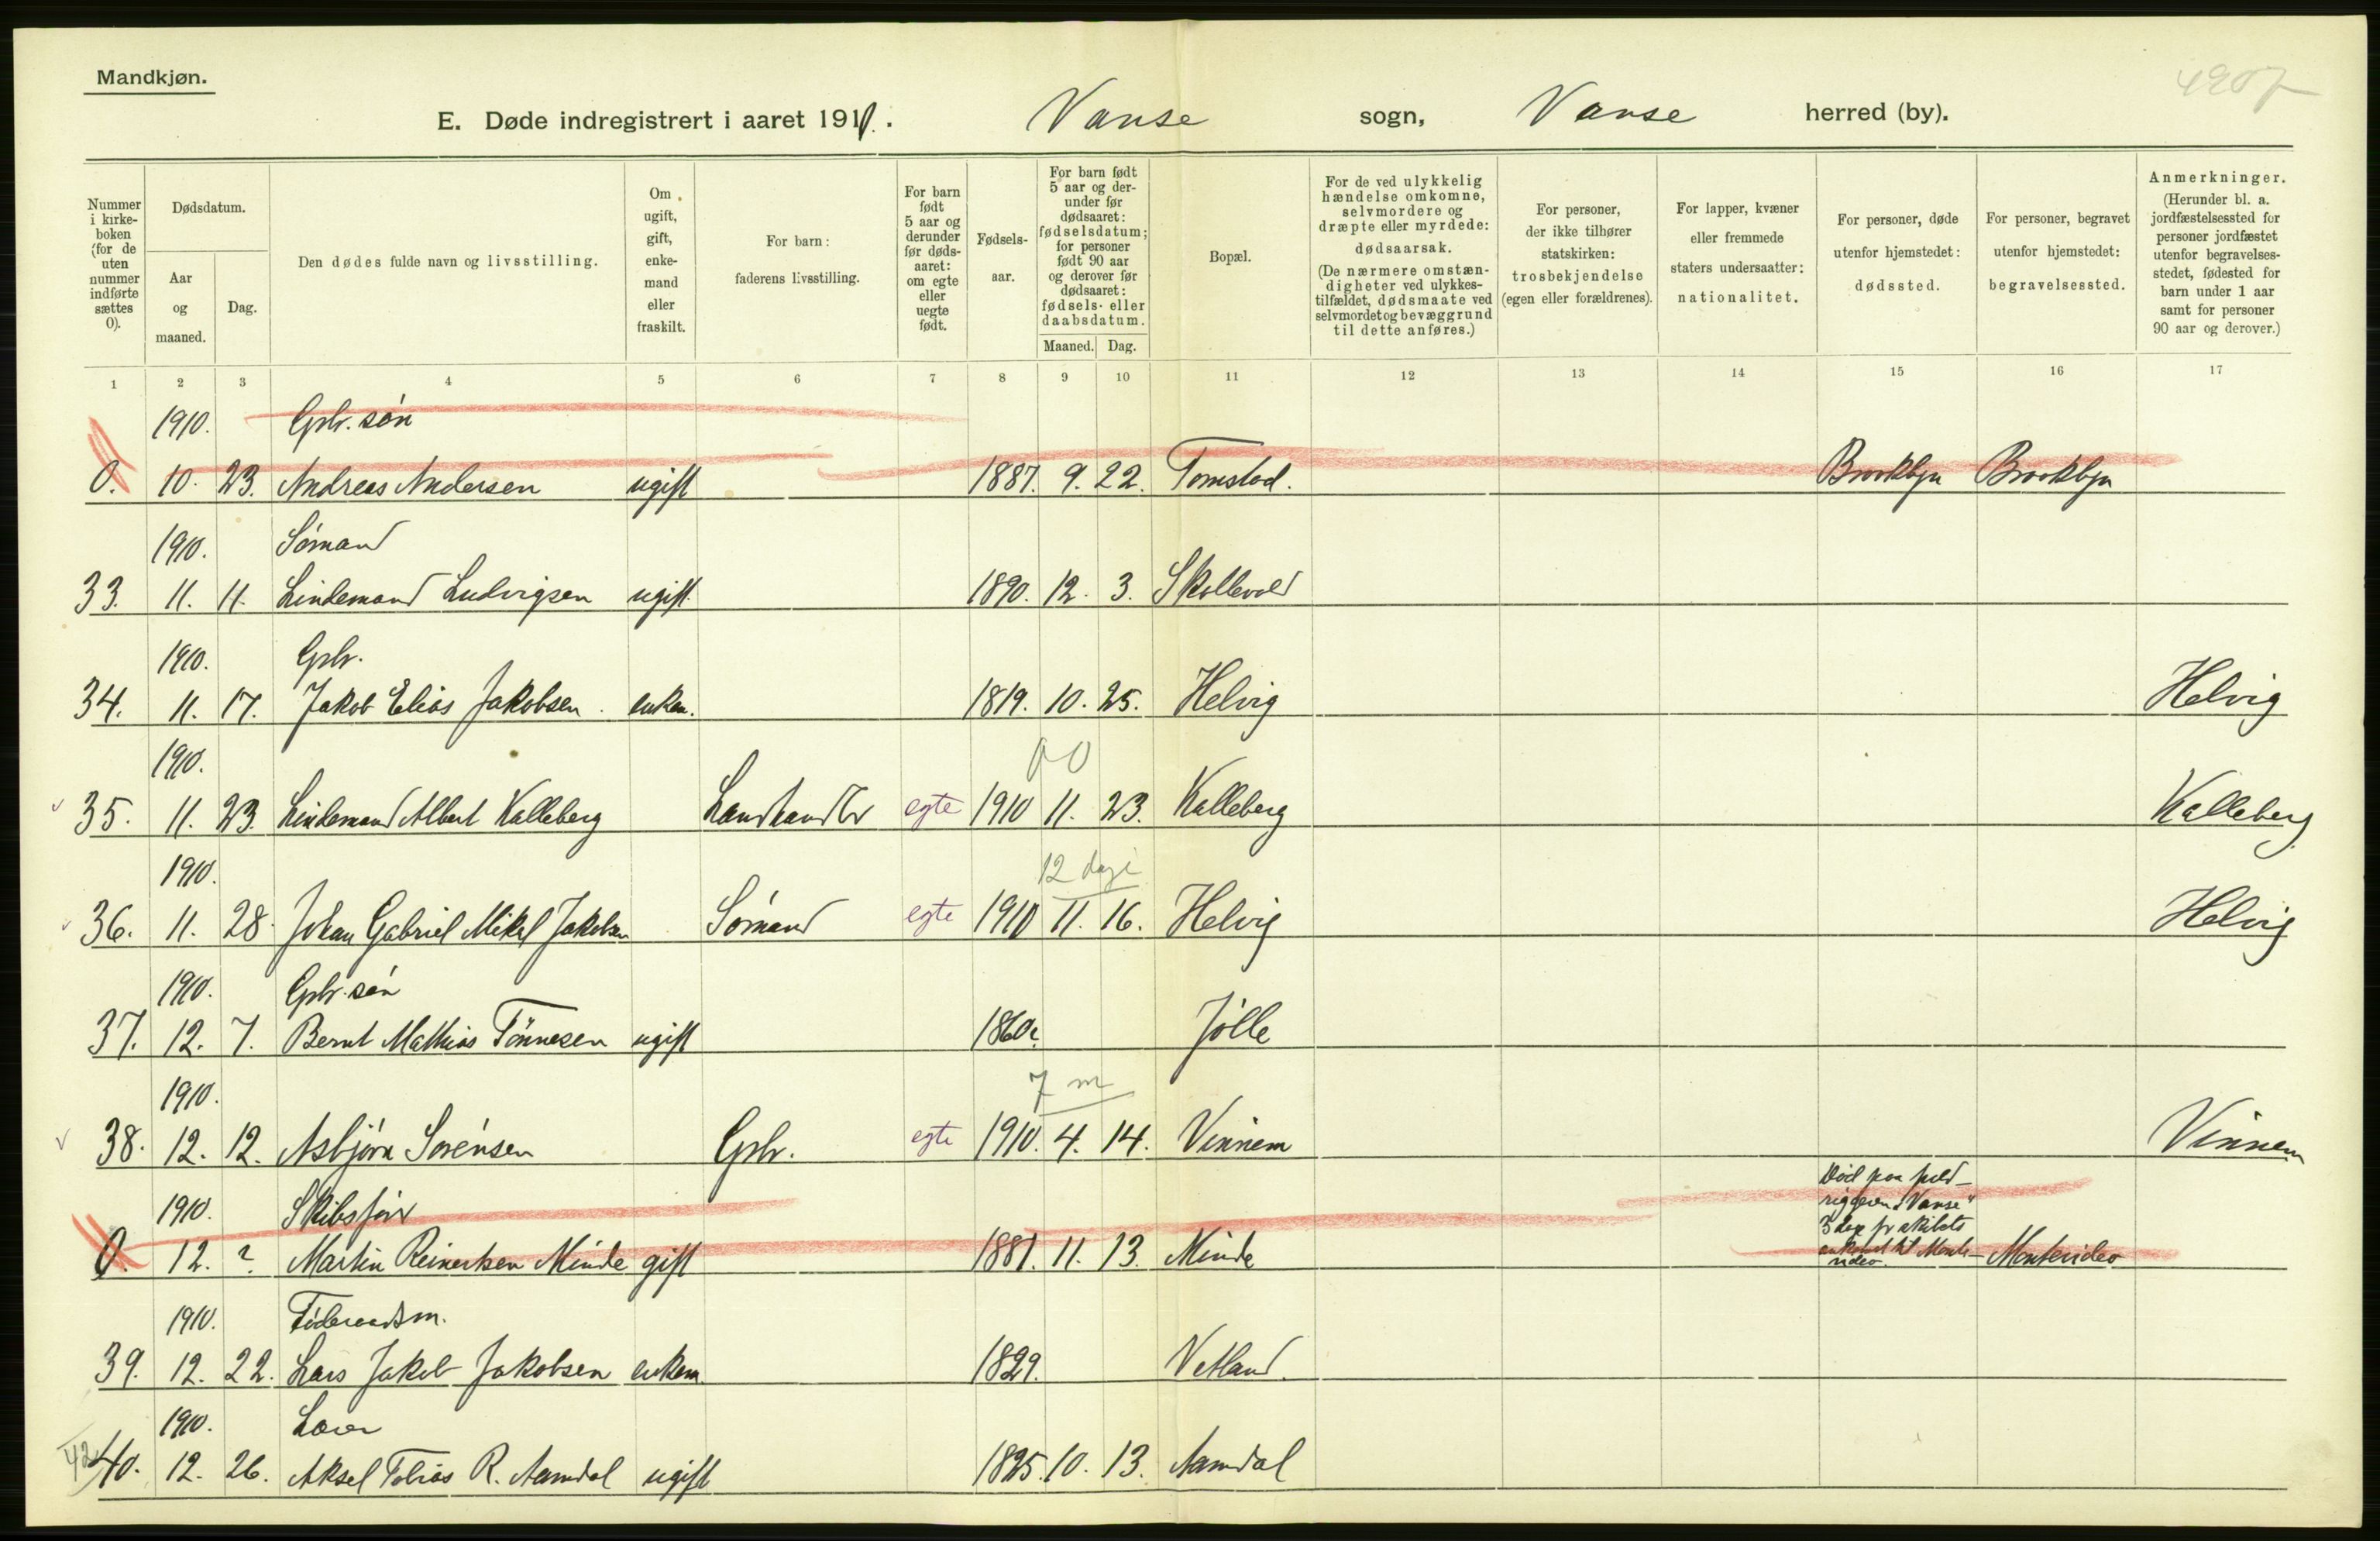 Mandkjøn.
4207
E. Døde indregistrert i aaret 1910. Vanse sogn, Vanse herred (by).
Nummer i kirkeboken (for de uten nummer indførte sættes 0).
Dødsdatum.
Aar og maaned.
Dag.
Den dødes fulde navn og livsstilling.
Om ugift, gift, enkemand eller fraskilt.
For barn: faderens livsstilling.
For barn født 5 aar og derunder før dødsaaret: om egte eller uegte født.
Fødselsaar.
For barn født 5 aar og derunder før dødsaaret: fødselsdatum; for personer født 90 aar og derover før dødsaaret: fødsels- eller daabsdatum.
Maaned. Dag.
Bopæl.
For de ved ulykkelig hændelse omkomne, selvmordere og dræpte eller myrdede: dødsaarsak. (De nærmere omstændigheter ved ulykkestilfældet, dødsmaate ved selvmordet og bevæggrund til dette anføres.)
For personer, der ikke tilhører statskirken: trosbekjendelse (egen eller forældrenes).
For lapper, kvæner eller fremmede staters undersaatter: nationalitet.
For personer, døde utenfor hjemstedet: dødssted.
For personer, begravet utenfor hjemstedet: begravelsessted.
Anmerkninger. (Herunder bl. a. jordfæstelsessted for personer jordfæstet utenfor begravelsesstedet, fødested for barn under 1 aar samt for personer 90 aar og derover.)
1 2 3 4 5 6 7 8 9 10 11 12 13 14 15 16 17
1910. Gbr. søn
0. 10. 23. Andreas Andersen ugift 1887. 9. 22. Tomstad. Brooklyn Brooklyn
1910. Sømand
33. 11. 11. Lindemand Ludvigsen ugift. 1890. 12. 3. Skollevold
1910. Gbr.
34. 11. 17. Jakob Elias Jakobsen enkem. 1819. 10. 25. Helvig Helvig
1910. 0 0
35. 11. 23. Lindemand Albert Kalleberg Landhandler egte 1910 11. 23. Kalleberg Kalleberg
1910. 12 dage
36. 11. 28. Johan Gabriel Mikal Jakobsen Sømand egte 1910 11. 16. Helvig Helvig
1910. Gbr. søn
37. 12. 7. Bernt Mathias Tönnesen ugift 1860. Jølle
1910. 7 m
38. 12. 12. Asbjørn Sørensen Gbr. egte 1910. 4. 14. Vinnem Vinnem
1910. Skibsfører
Død paa fuldriggeren "Vanse" 3 dage før skibets ankomst til Montevideo.
0. 12. ? Martin Reinertsen Minde gift 1881. 11. 13. Minde Montevideo
1910. Føderaadsm.
39. 12. 22. Lars Jakob Jakobsen enkem 1829. Vetland.
1910. Lærer
42 40. 12. 26. Aksel Tobias R. Aamdal ugift 1825. 10. 13. Aamdal